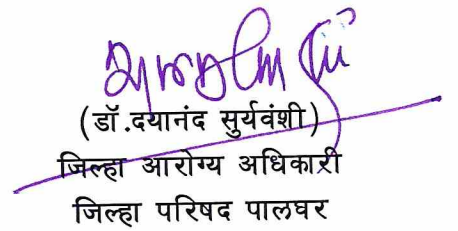 (डॉ.दयानंद सुर्यवंशी)
जिल्हा आरोग्य अधिकारी
जिल्हा परिषद पालघर